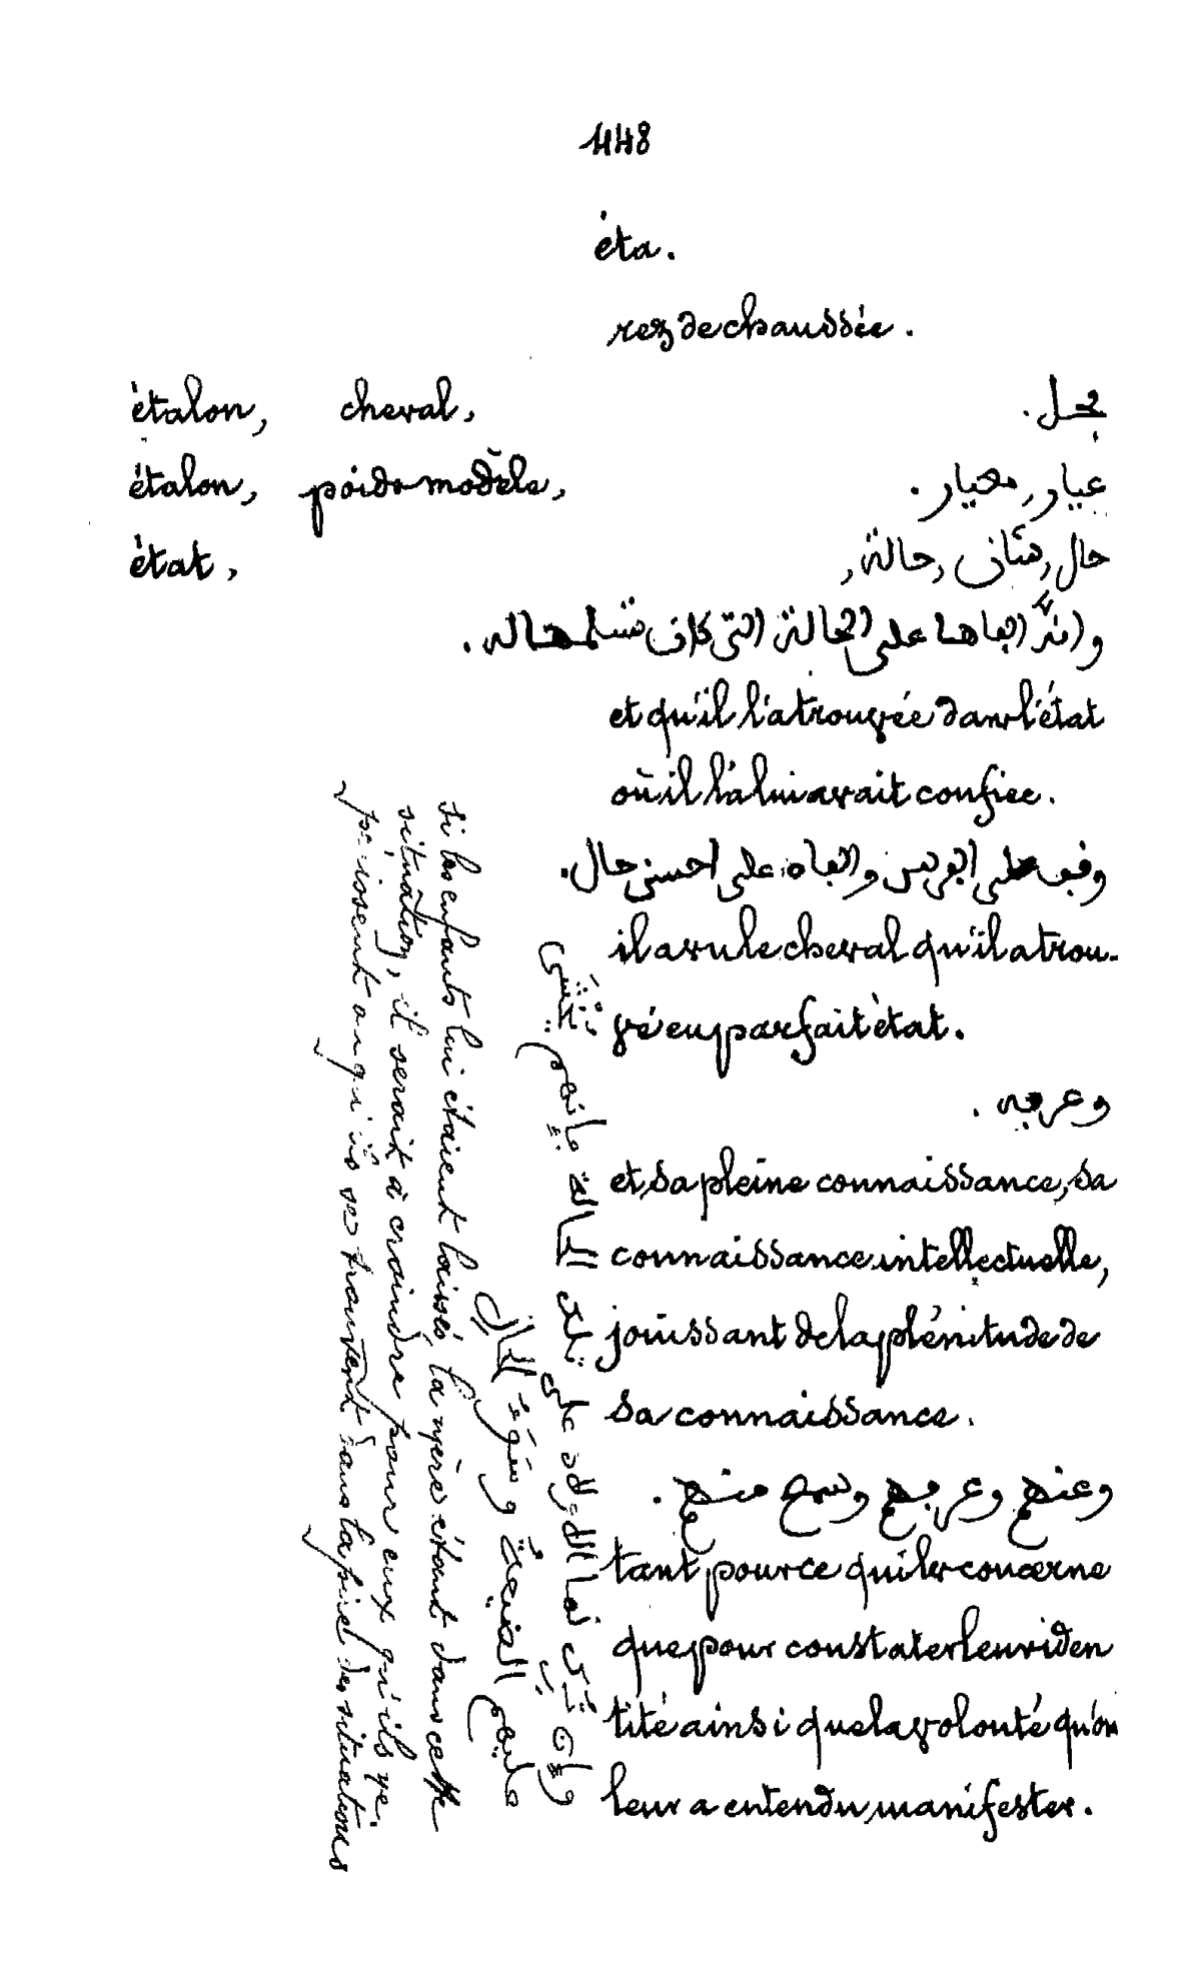 448
éta.
rez de chaussée.
étalon, cheval, فحل.
étalon, poids modèle, عيار, معيار.
état, حال, شان, حالة,
وانه الفاها على الحالة التى كان سلمها له.
et qu'il l'a trouvée dans l'état
où il l'a lui avait confiée.
على الفرس والفاه على احسن حال.
il a vu le cheval qu'il a trou-
vé en parfait état.
وعرفه.
et, sa pleine connaissance, sa
connaissance intellectuelle,
jouissant de la plénitude de
sa connaissance.
وعنهم وعرفهم وسمع منهم.
tant pour ce qui les concerne
que pour constater leur iden
tité ainsi que la volonté qu'on
leur a entendu manifester.
على تلك الحالة فإنهم يخشى
عليهم الضيعة وسوء الحال
si les enfants lui étaient laissés, la mère étant dans cette
situation, il serait à craindre pour eux qu'ils ne
périssent ou qu'ils se trouvent dans la pire des situations